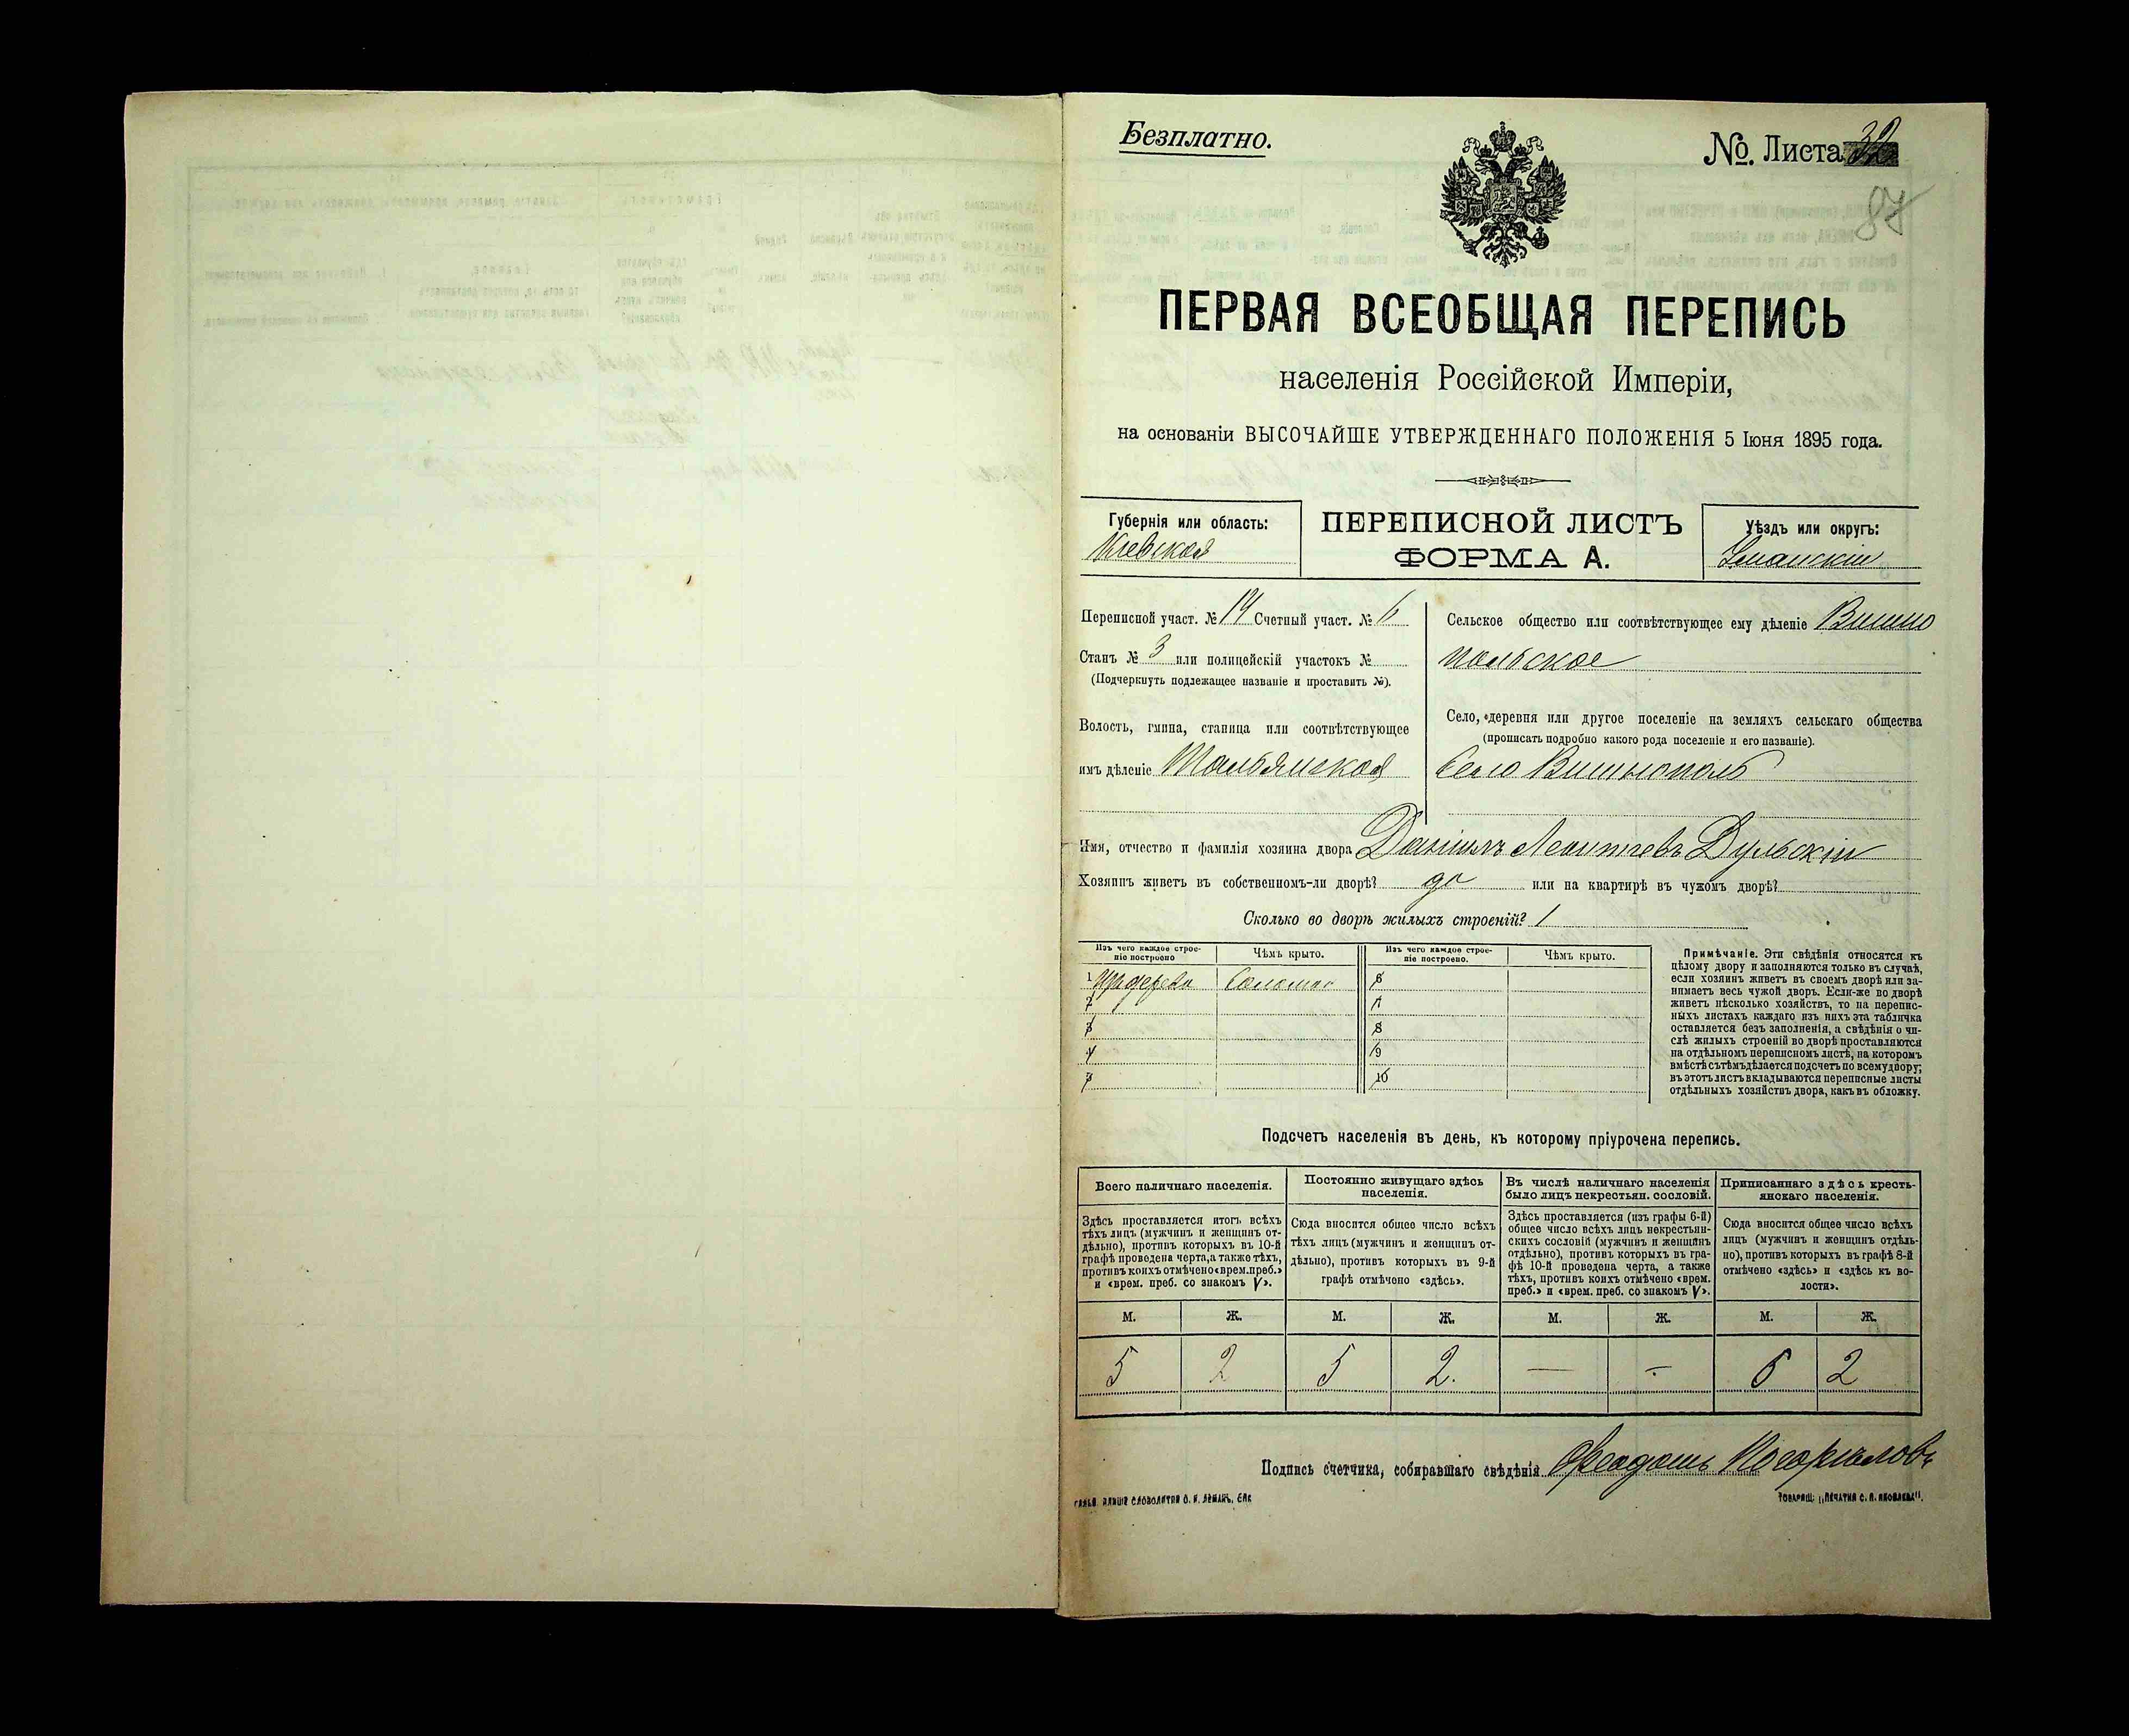 Безплатно.
№. Листа 32
87
ПЕРВАЯ ВСЕОБЩАЯ ПЕРЕПИСЬ
населенія Россійской Имперіи,
на основаніи ВЫСОЧАЙШЕ УТВЕРЖДЕННАГО ПОЛОЖЕНІЯ 5 Іюня 1895 года.
Губернія или область:
Кіевская
ПЕРЕПИСНОЙ ЛИСТЪ
ФОРМА А.
Уѣздъ или округъ:
Уманскій
Переписной участ. № 14 Счетный участ. № 6
Станъ № 3 или полицейскій участокъ №
(Подчеркнуть подлежащее названіе и проставить №).
Волость, гмина, станица или соотвѣтствующее
имъ дѣленіе Тальянская
Сельское общество или соотвѣтствующее ему дѣленіе Вишно
польское
Село, деревня или другое поселеніе на земляхъ сельскаго общества
(прописать подробно какого рода поселеніе и его названіе).
Село Вишнополь
Имя, отчество и фамилія хозяина двора Даніилъ Леонтіевъ Дульскій
Хозяинъ живетъ въ собственномъ-ли дворѣ? да или на квартирѣ въ чужомъ дворѣ?
Сколько во дворѣ жилыхъ строеній? 1
Изъ чего каждое строе-
ніе построено
Чѣмъ крыто.
Изъ чего каждое строе-
ніе построено.
Чѣмъ крыто.
1 Изъ дерева Соломою 6
2 7
3 8
4 9
5 10
Примѣчаніе. Эти свѣдѣнія относятся къ
цѣлому двору и заполняются только въ случаѣ,
если хозяинъ живетъ въ своемъ дворѣ или за-
нимаетъ весь чужой дворъ. Если-же во дворѣ
живетъ нѣсколько хозяйствъ, то на перепис-
ныхъ листахъ каждаго изъ нихъ эта табличка
оставляется безъ заполненія, а свѣдѣнія о чи-
слѣ жилыхъ строеній во дворѣ проставляются
на отдѣльномъ переписномъ листѣ, на которомъ
вмѣстѣ съ тѣмъ дѣлается подсчетъ по всему двору;
въ этотъ листъ вкладываются переписные листы
отдѣльныхъ хозяйствъ двора, какъ въ обложку.
Подсчетъ населенія въ день, къ которому пріурочена перепись.
Всего наличнаго населенія.
Здѣсь проставляется итогъ всѣхъ
тѣхъ лицъ (мужчинъ и женщинъ от-
дѣльно), противъ которыхъ въ 10-й
графѣ проведена черта, а также тѣхъ,
противъ коихъ отмѣчено «врем. преб.»
и «врем. преб. со знакомъ V».
Постоянно живущаго здѣсь
населенія.
Сюда вносится общее число всѣхъ
тѣхъ лицъ (мужчинъ и женщинъ от-
дѣльно), противъ которыхъ въ 9-й
графѣ отмѣчено «здѣсь».
Въ числѣ наличнаго населенія
было лицъ некрестьян. сословій.
Здѣсь проставляется (изъ графы 6-й)
общее число всѣхъ лицъ некрестьян-
скихъ сословій (мужчинъ и женщинъ
отдѣльно), противъ которыхъ въ гра-
фѣ 10-й проведена черта, а также
тѣхъ, противъ коихъ отмѣчено «врем.
преб.» и «врем. преб. со знакомъ V».
Приписаннаго здѣсь кресть-
янскаго населенія.
Сюда вносится общее число всѣхъ
лицъ (мужчинъ и женщинъ отдѣль-
но), противъ которыхъ въ графѣ 8-й
отмѣчено «здѣсь» и «здѣсь къ во-
лости».
М. Ж. М. Ж. М. Ж. М. Ж.
5 2 5 2. — — 6 2
Подпись счетчика, собиравшаго свѣдѣнія
ТОВАРИЩ. „ПЕЧАТНЯ С. П. ЯКОВЛЕВА".